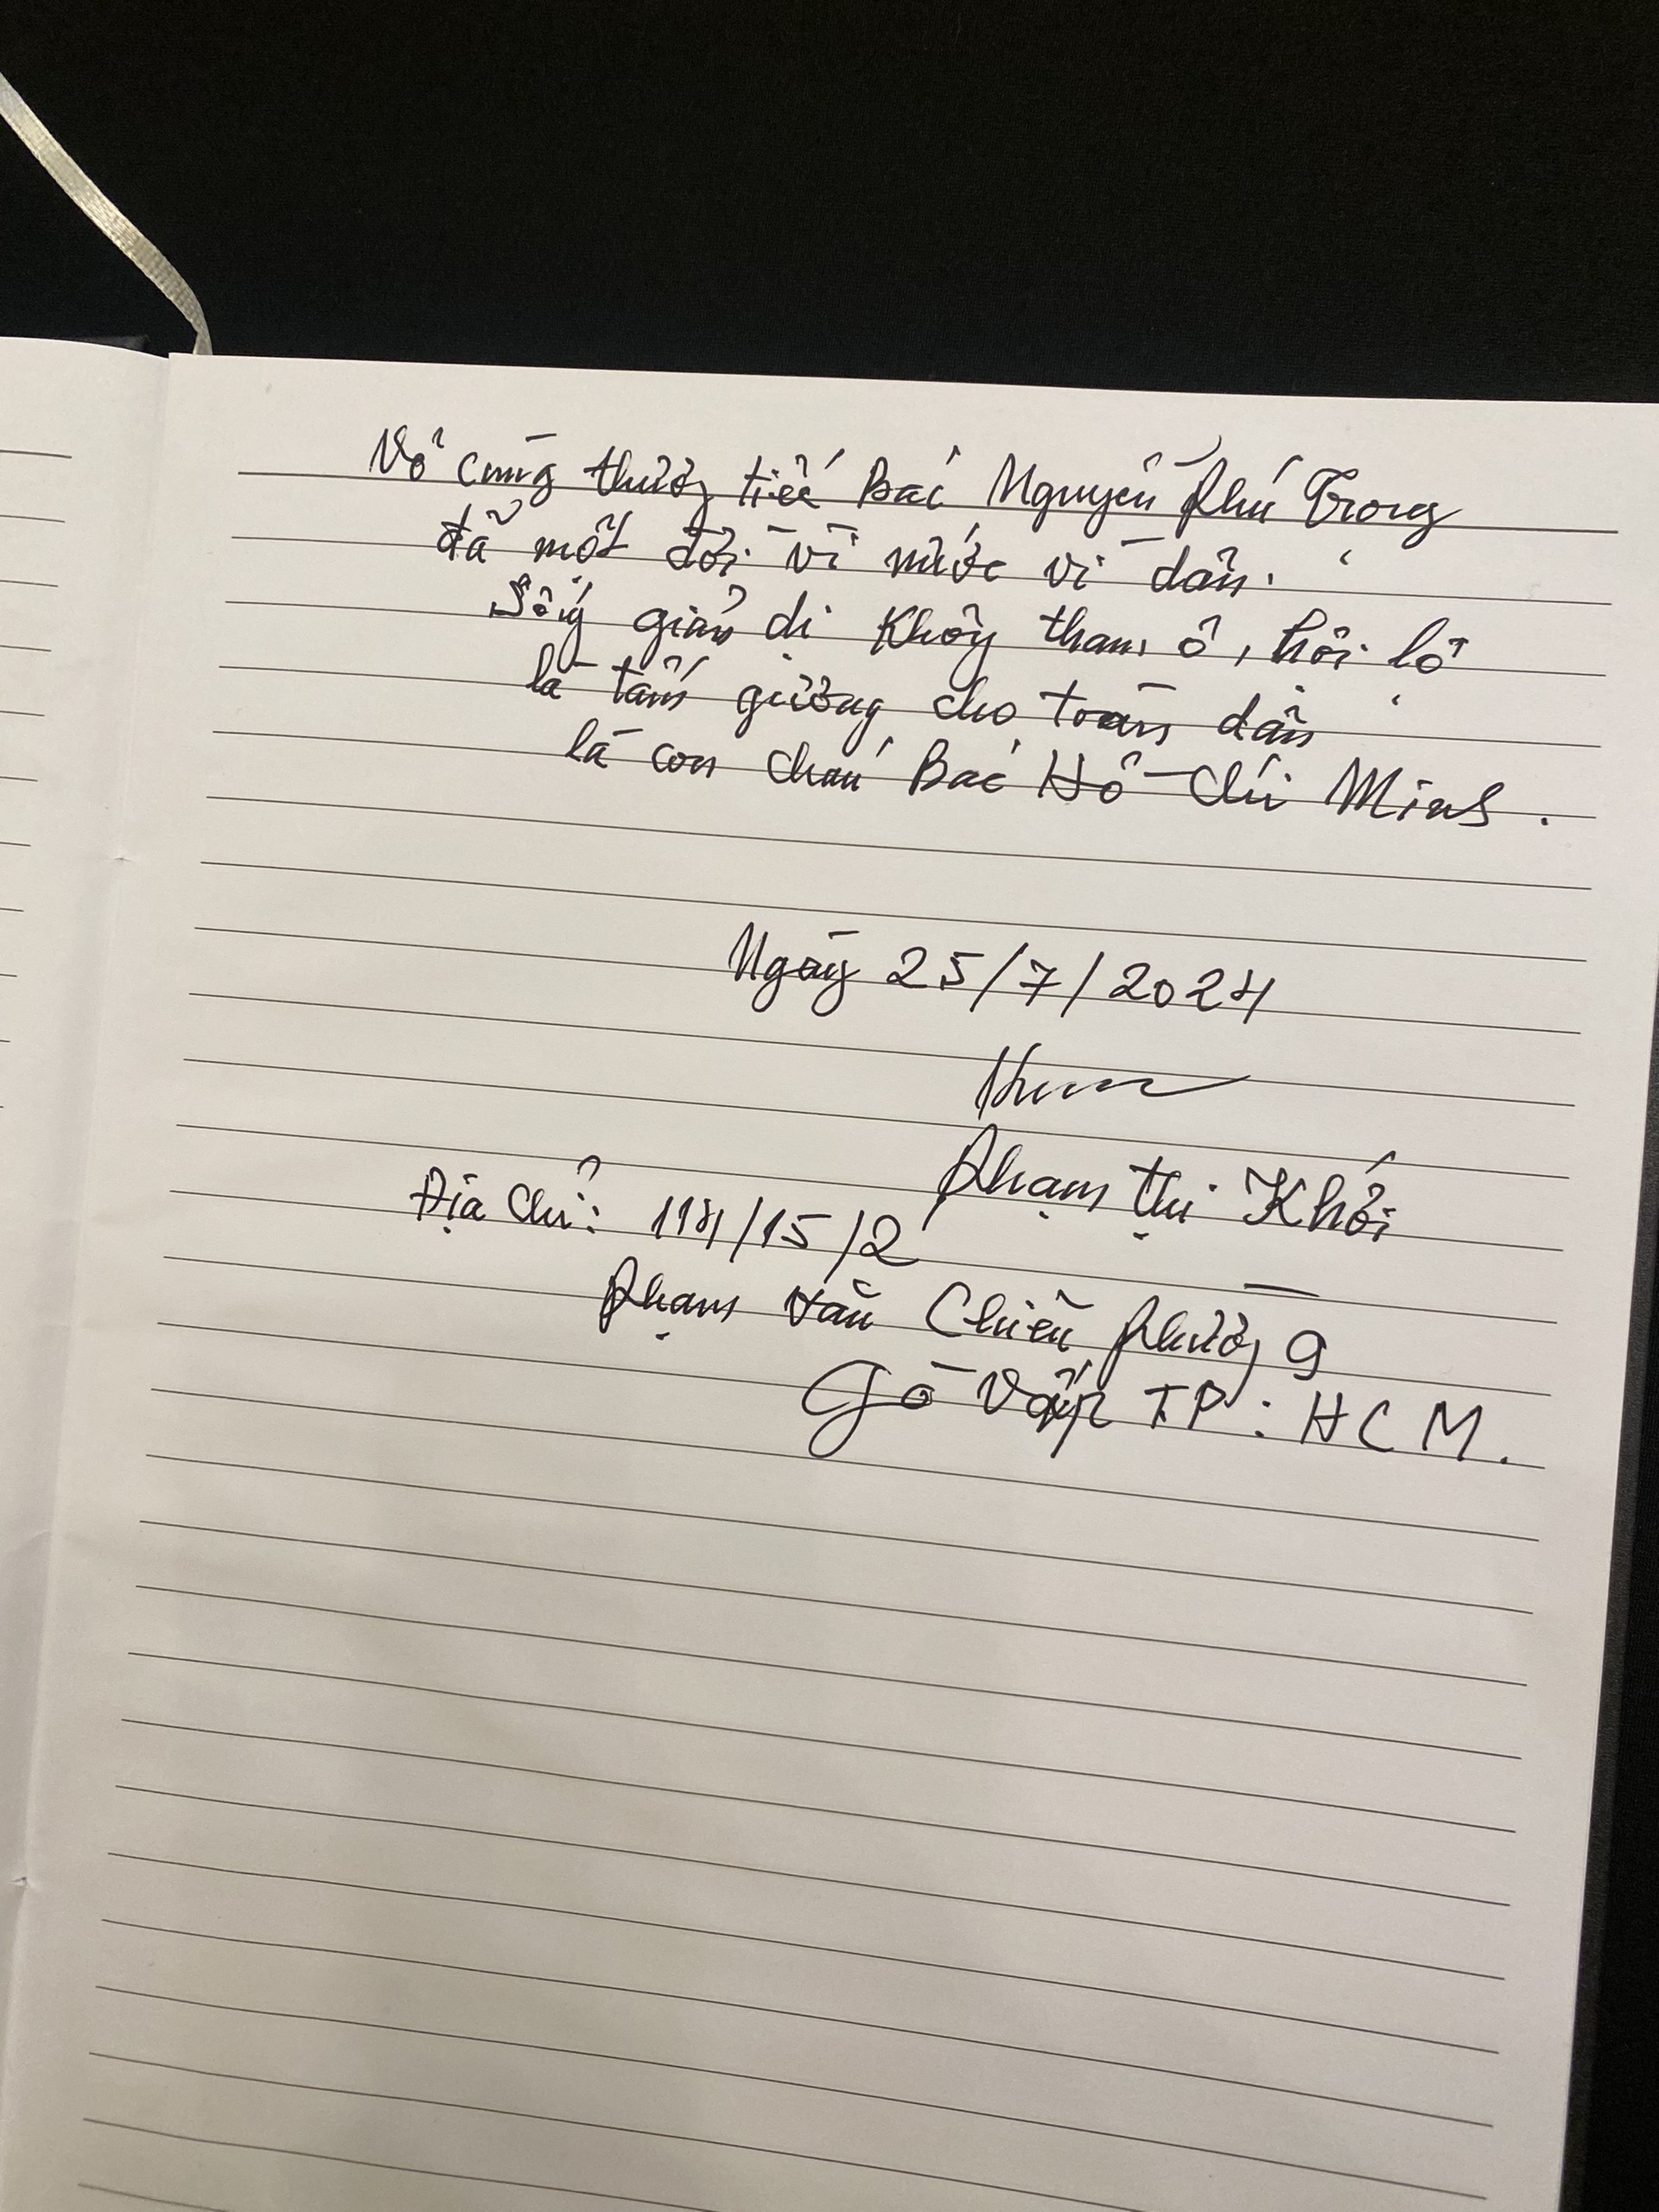 Vô cùng thương tiếc Bác Nguyễn Phú Trọng
đã một đời vì nước vì dân.
Sống giản dị không tham ô, hối lộ
là tấm gương cho toàn dân
là con cháu Bác Hồ Chí Minh.
Ngày 25/7/2024
Phạm Thị Khối
Địa Chỉ: 114/15/2
Phạm Văn Chiêu phường 9
Gò Vấp TP: HCM.